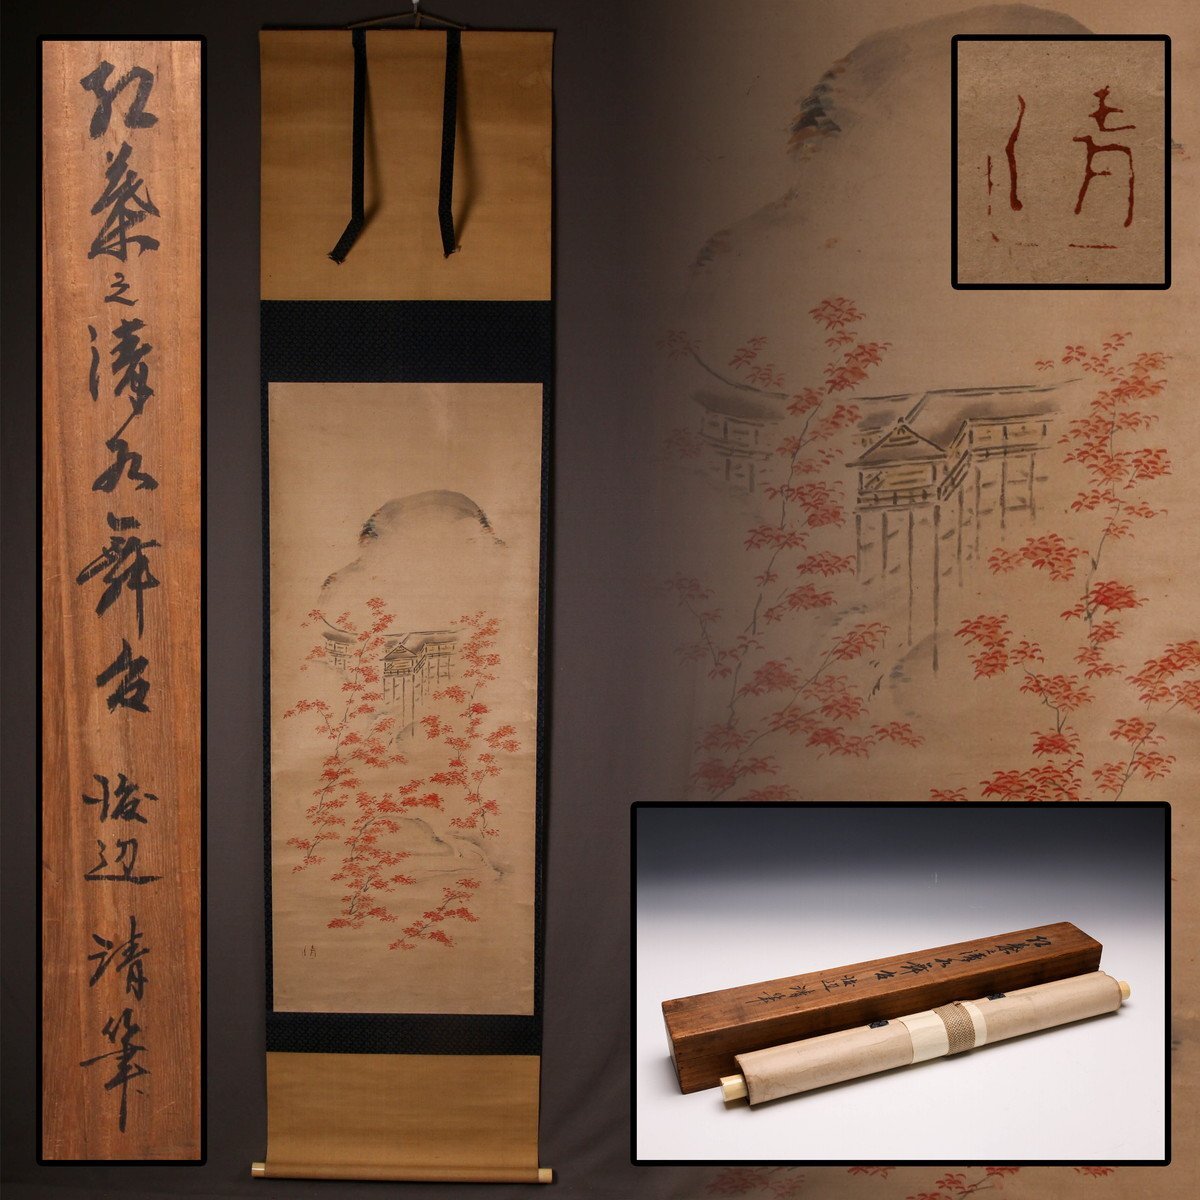 紅葉之清水舞台 渡辺清筆
清
紅葉之清水舞台 渡辺清筆